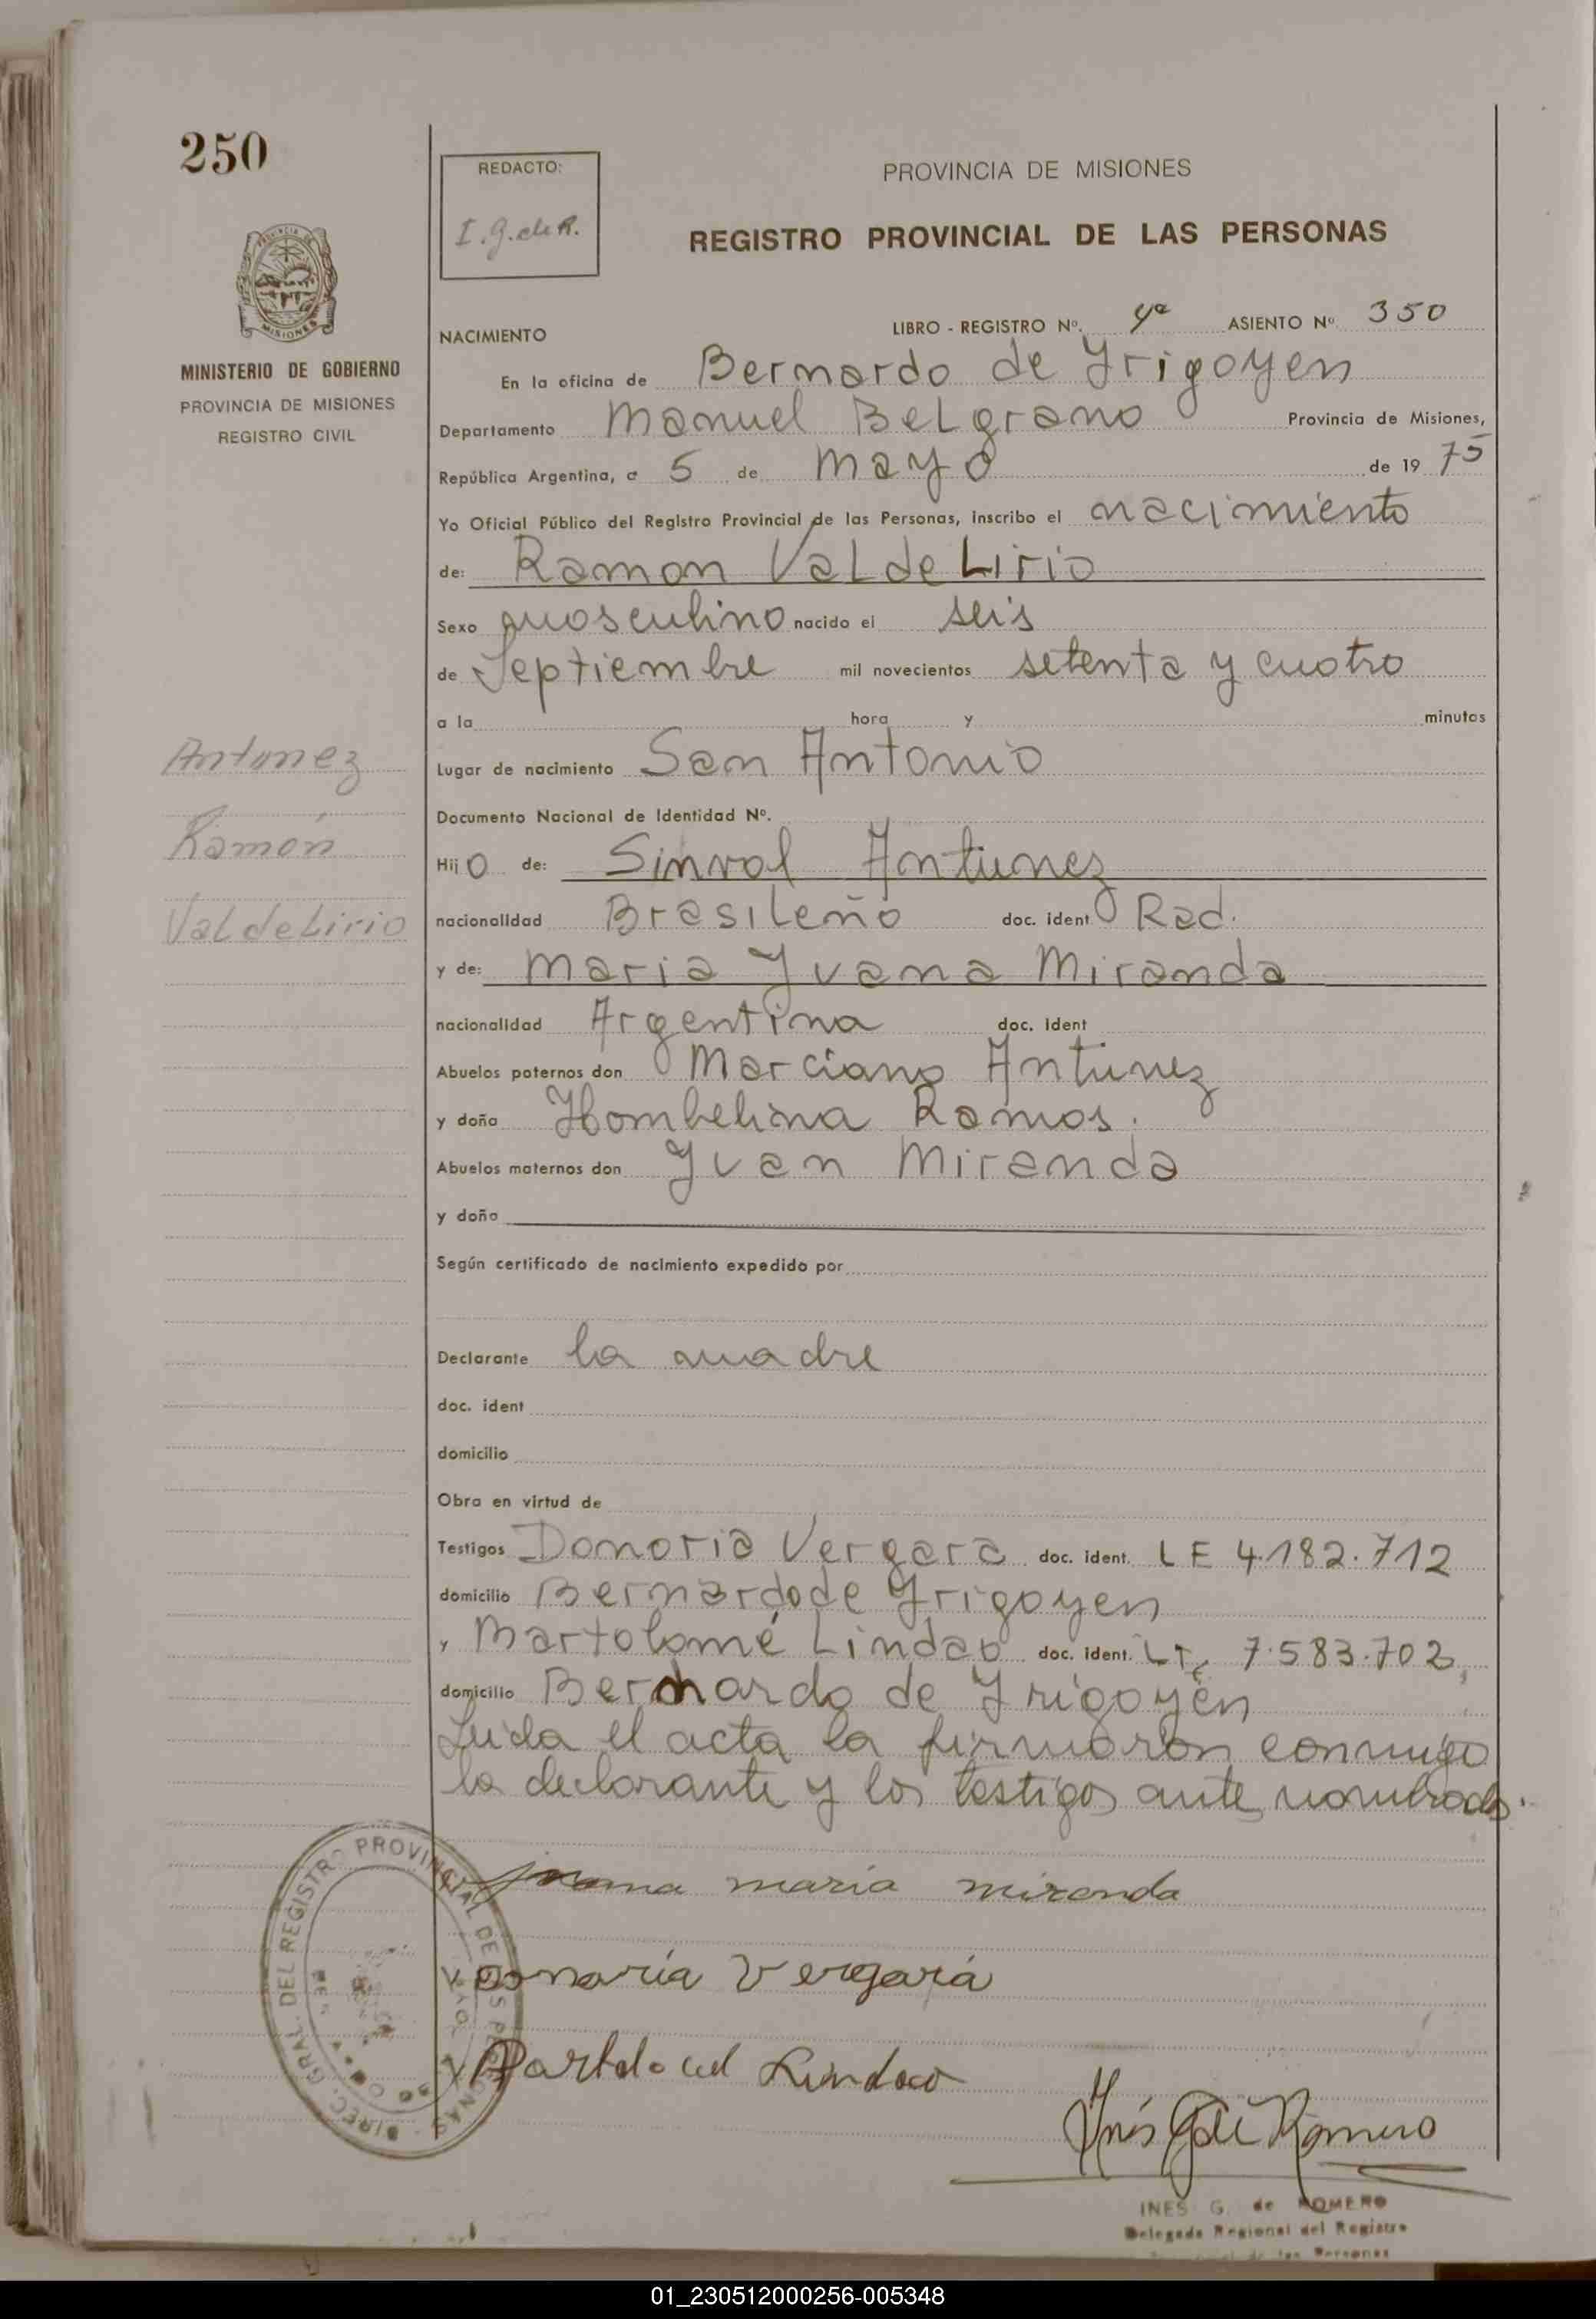 250
REDACTO:
I. G. de R.
PROVINCIA DE MISIONES
REGISTRO PROVINCIAL DE LAS PERSONAS
PROVINCIA DE
MISIONES
MINISTERIO DE GOBIERNO
PROVINCIA DE MISIONES
REGISTRO CIVIL
NACIMIENTO LIBRO - REGISTRO Nº. 4º ASIENTO Nº 350
En la oficina de Bernardo de Yrigoyen
Departamento Manuel BeLgrano Provincia de Misiones,
República Argentina, a 5 de mayo de 19 75
Yo Oficial Público del Registro Provincial de las Personas, inscribo el nacimiento
de: Ramon VaLdeLirio
Sexo masculino nacido el seis
de Septiembre mil novecientos setenta y cuatro
a la hora y minutos
Antunez
Lugar de nacimiento San Antonio
Documento Nacional de Identidad Nº.
Ramón
Hijo de: Sinval Antunez
VaLdeLirio
nacionalidad Brasileño doc. ident Rad.
y de: Maria Yuana Miranda
nacionalidad Argentina doc. ident
Abuelos paternos don Marciano Antunez
y doña Hombelina Ramos.
Abuelos maternos don Yuan Miranda
y doña
Según certificado de nacimiento expedido por
Declarante La madre
doc. ident
domicilio
Obra en virtud de
Testigos Donoria Vergara doc. ident. LE 4.182.712
domicilio Bernardo de Yrigoyen
, Bartolomé Lindao doc. ident. 7.583.702,
domicilio Bernardo de Yrigoyen
Leida el acta la firmaron conmigo
la declarante y los testigos ante nombrados.
juana maria miranda
Donaría Vergara
Lindao
Inés G de Romero
DIREC. GRAL. DEL REGISTRO PROVINCIAL DE LAS PERSONAS
INES G. de ROMERO
Delegada Regional del Registro
de las Personas
01_230512000256-005348